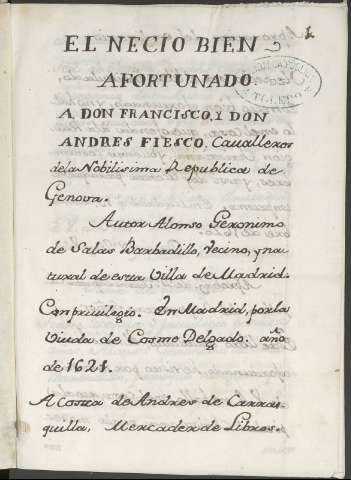 1
EL NECIO BIEN
AFORTUNADO
A DON FRANCISCO, I DON
ANDRES FIESCO, Cavalleros
de la Nobilisima Republica de
Genova.
Autor Alonso Geronimo
de Salas Barbadillo, Vecino, y na-
tural de esta Villa de Madrid.
Con privilegio. En Madrid, por la
Viuda de Cosme Delgado. año
de 1621.
A Costa de Andres de Carras-
quilla, Mercader de Libros.
TOLEDO